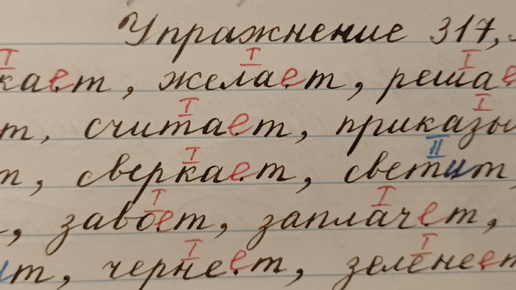 Упражнение 317,
кает, желает, решае
т, считает, приказы
т, сверкает, светит,
, завоет, заплачет,
ит, чернеет, зеленеет